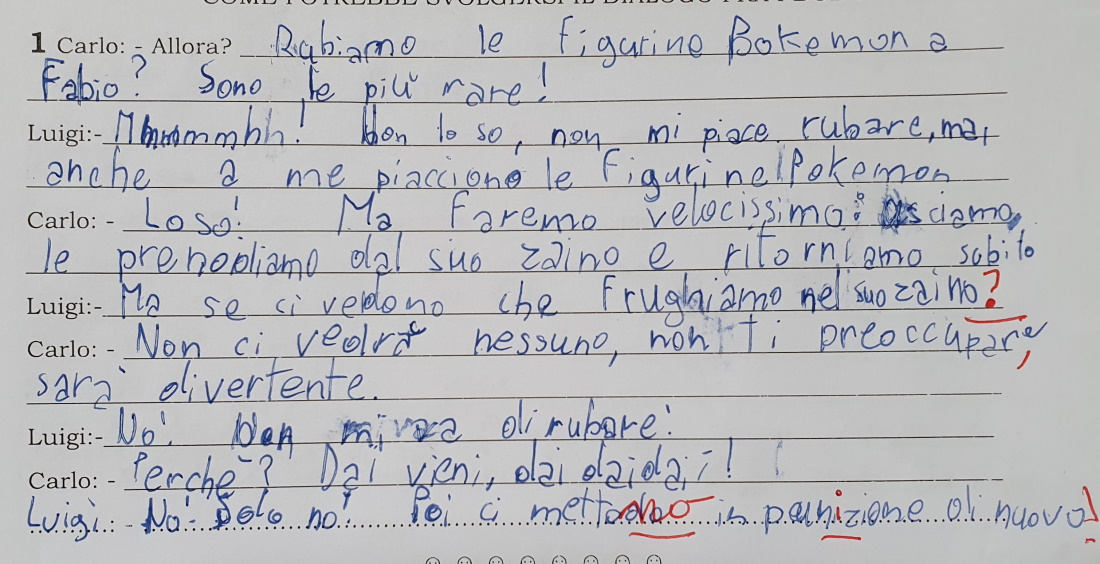 COME POTREBBE SVOLGERSI IL DIALOGO
1 Carlo: - Allora? Rubiamo le figurine Bokemon a
Fabio? Sono le più rare!
Luigi:- Mhmmmhh! Non lo so, non mi piace rubare, ma,
anche a me piacciono le figurine Pokemon
Carlo: - Lo so! Ma faremo velocissimo: usciamo,
le prendiamo dal suo zaino e ritorniamo subito
Luigi:- Ma se ci vedono che frughiamo nel suo zaino?
Carlo: - Non ci vedrà nessuno, non ti preoccupare,
sarà divertente.
Luigi:- No! Non mi va di rubare!
Carlo: - Perché? Dai vieni, dai dai dai!
Luigi: - No! Solo no! Poi ci mettono in punizione di nuovo!